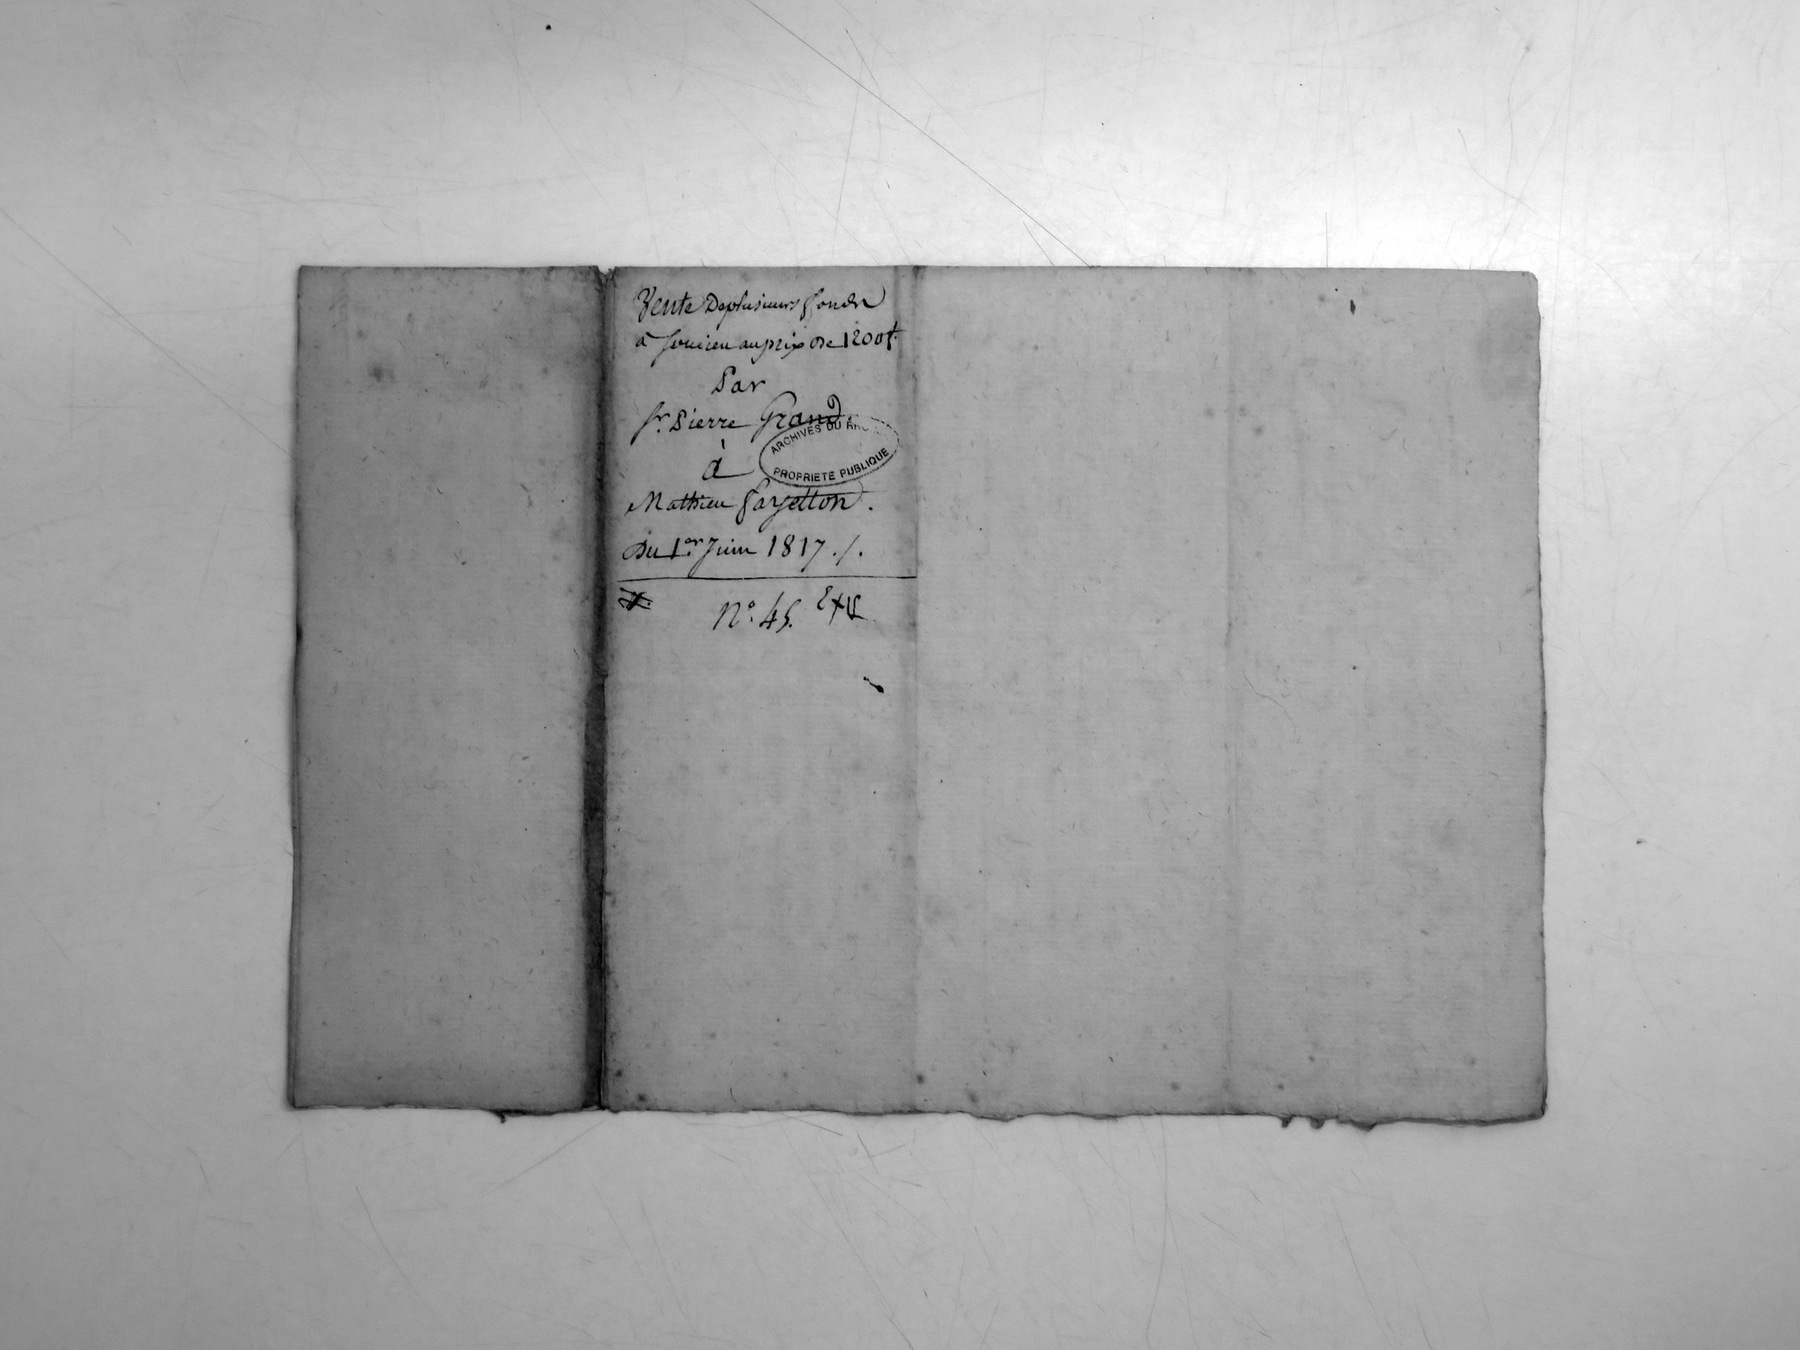 Vente De plusieurs fonds
à Soucieu au prix de 1200f.
Par
Sr. Pierre Grand.
ARCHIVES DU RHÔNE
PROPRIETE PUBLIQUE
à
Mathieu Fayetton.
Du 1er. Juin 1817./.
No. 45.